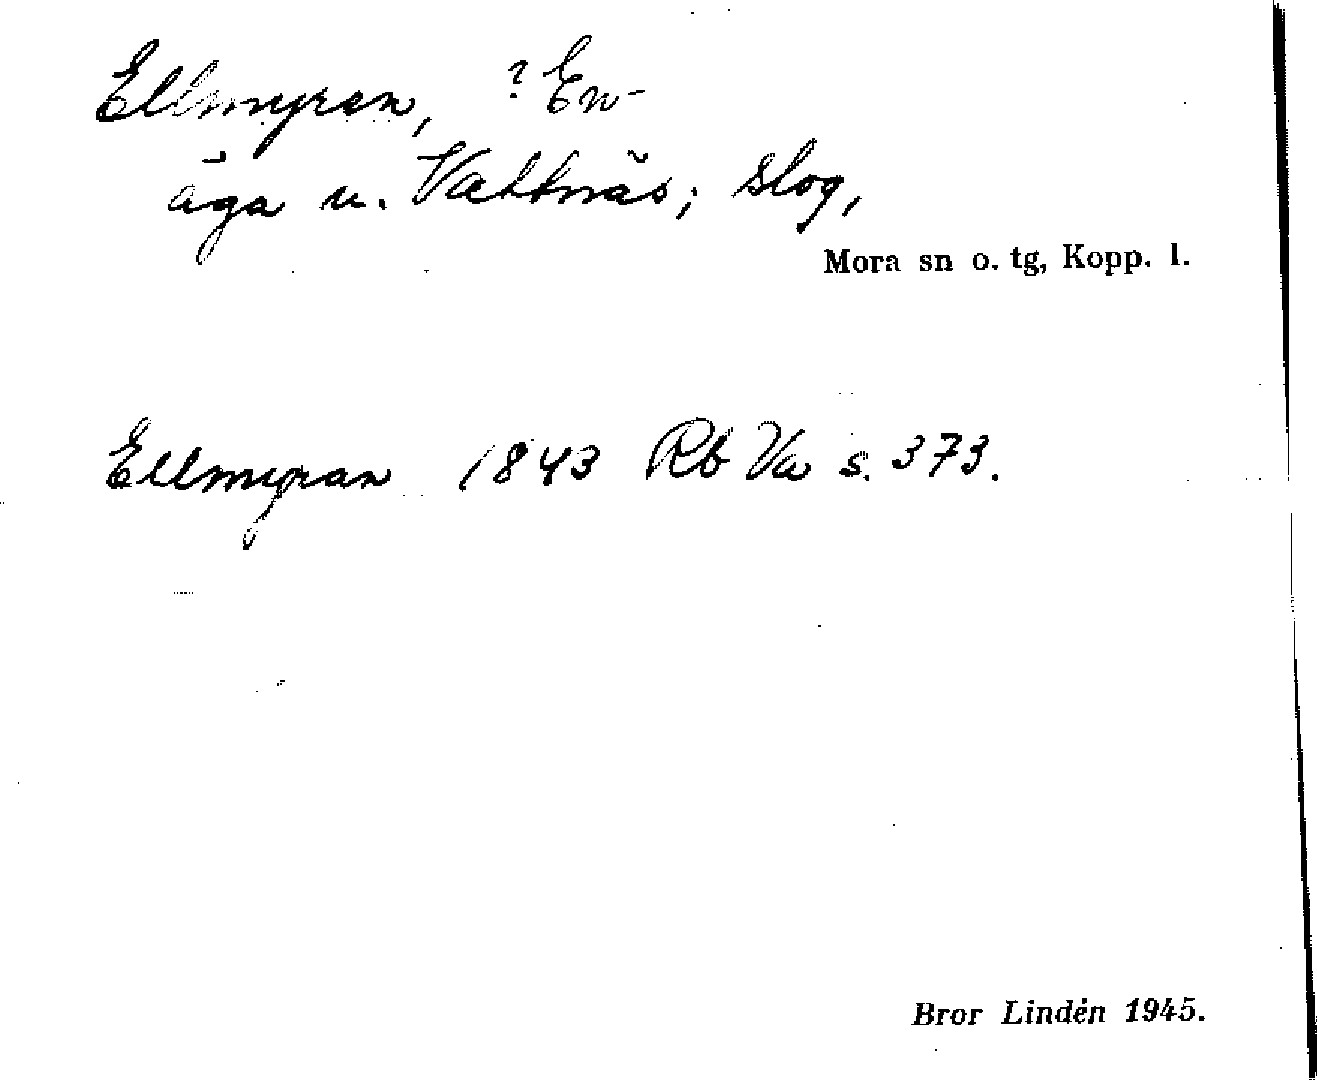 Ellmyran, ? En-
äga u. Vattnäs; slog,
Mora sn o. tg, Kopp. l.
Ellmyran 1843 Rb Va s. 373.
Bror Lindén 1945.